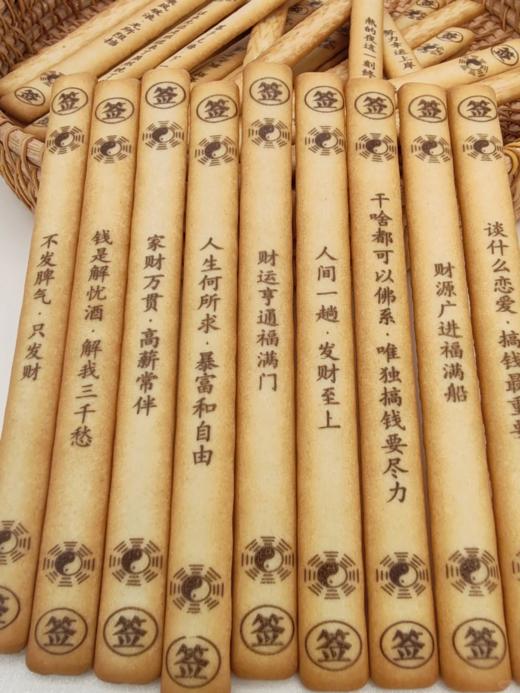 签
不发脾气·只发财
签
签
钱是解忧酒·解我三千愁
签
签
家财万贯·高薪常伴
签
签
人生何所求·暴富和自由
签
签
财运亨通福满门
签
签
人间一趟·发财至上
签
签
干啥都可以佛系 唯独搞钱要尽力
签
签
财源广进福满船
签
签
谈什么恋爱·搞钱最重要
努力幸运上岸